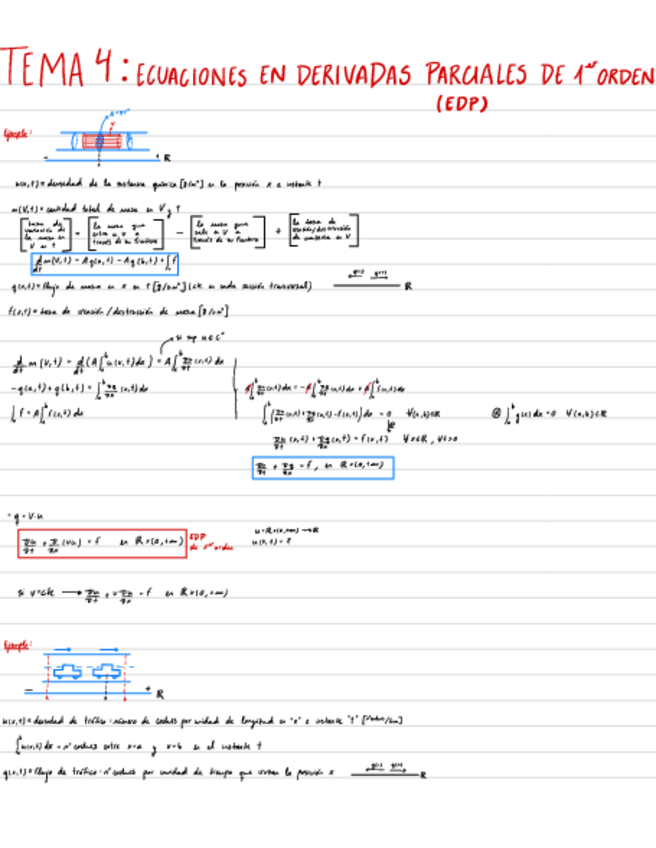 TEMA 4: ECUACIONES EN DERIVADAS PARCIALES DE 1er ORDEN
(EDP)
Ejemplo:
R
u(x,t) = densidad de la sustancia química [g/m³] en la posición x e instante t
m(V,t) = cantidad total de masa en V y t
[tasa de variación de la masa en V en t] = [la masa que entra a V a través de su frontera] - [la masa que sale a V a través de su frontera] + [la tasa de creación/destrucción de sustancia en V]
d/dt m(V,t) = Aq(a,t) - Aq(b,t) + ∫f
q(x,t) = flujo de masa en x en t [g/sm²] (cte en cada sección transversal)
R
f(x,t) = tasa de creación/destrucción de masa
d/dt m(V,t) = d/dt (A∫ₐᵇ u(x,t)dx) = A∫ₐᵇ ∂u/∂t (x,t) dx
-q(a,t) + q(b,t) = ∫ₐᵇ ∂q/∂x (x,t) dx
∫f = A∫ₐᵇ f(x,t) dx
A∫ₐᵇ ∂u/∂t (x,t) dx = -A∫ₐᵇ ∂q/∂x (x,t) dx + A∫ₐᵇ f(x,t) dx
∫ₐᵇ (∂u/∂t (x,t) + ∂q/∂x (x,t) - f(x,t)) dx = 0 ∀(a,b)⊂R
∫ₐᵇ g(x) dx = 0 ∀(a,b)⊂R
∂u/∂t (x,t) + ∂q/∂x (x,t) = f(x,t) ∀x∈R, ∀t>0
∂u/∂t + ∂q/∂x = f, en R×(0,+∞)
· q = V·u
∂u/∂t + ∂/∂x (Vu) = f en R×(0,+∞)
EDP de 1er orden
u: R×(0,+∞) → R
u(x,t) = ?
si V=cte → ∂u/∂t + V ∂u/∂x = f en R×(0,+∞)
Ejemplo:
R
u(x,t) = densidad de tráfico = número de coches por unidad de longitud en "x" e instante "t"
∫ₐᵇ u(x,t) dx = nº coches entre x=a y x=b en el instante t
q(x,t) = flujo de tráfico = nº coches por unidad de tiempo que cruzan la posición x
R